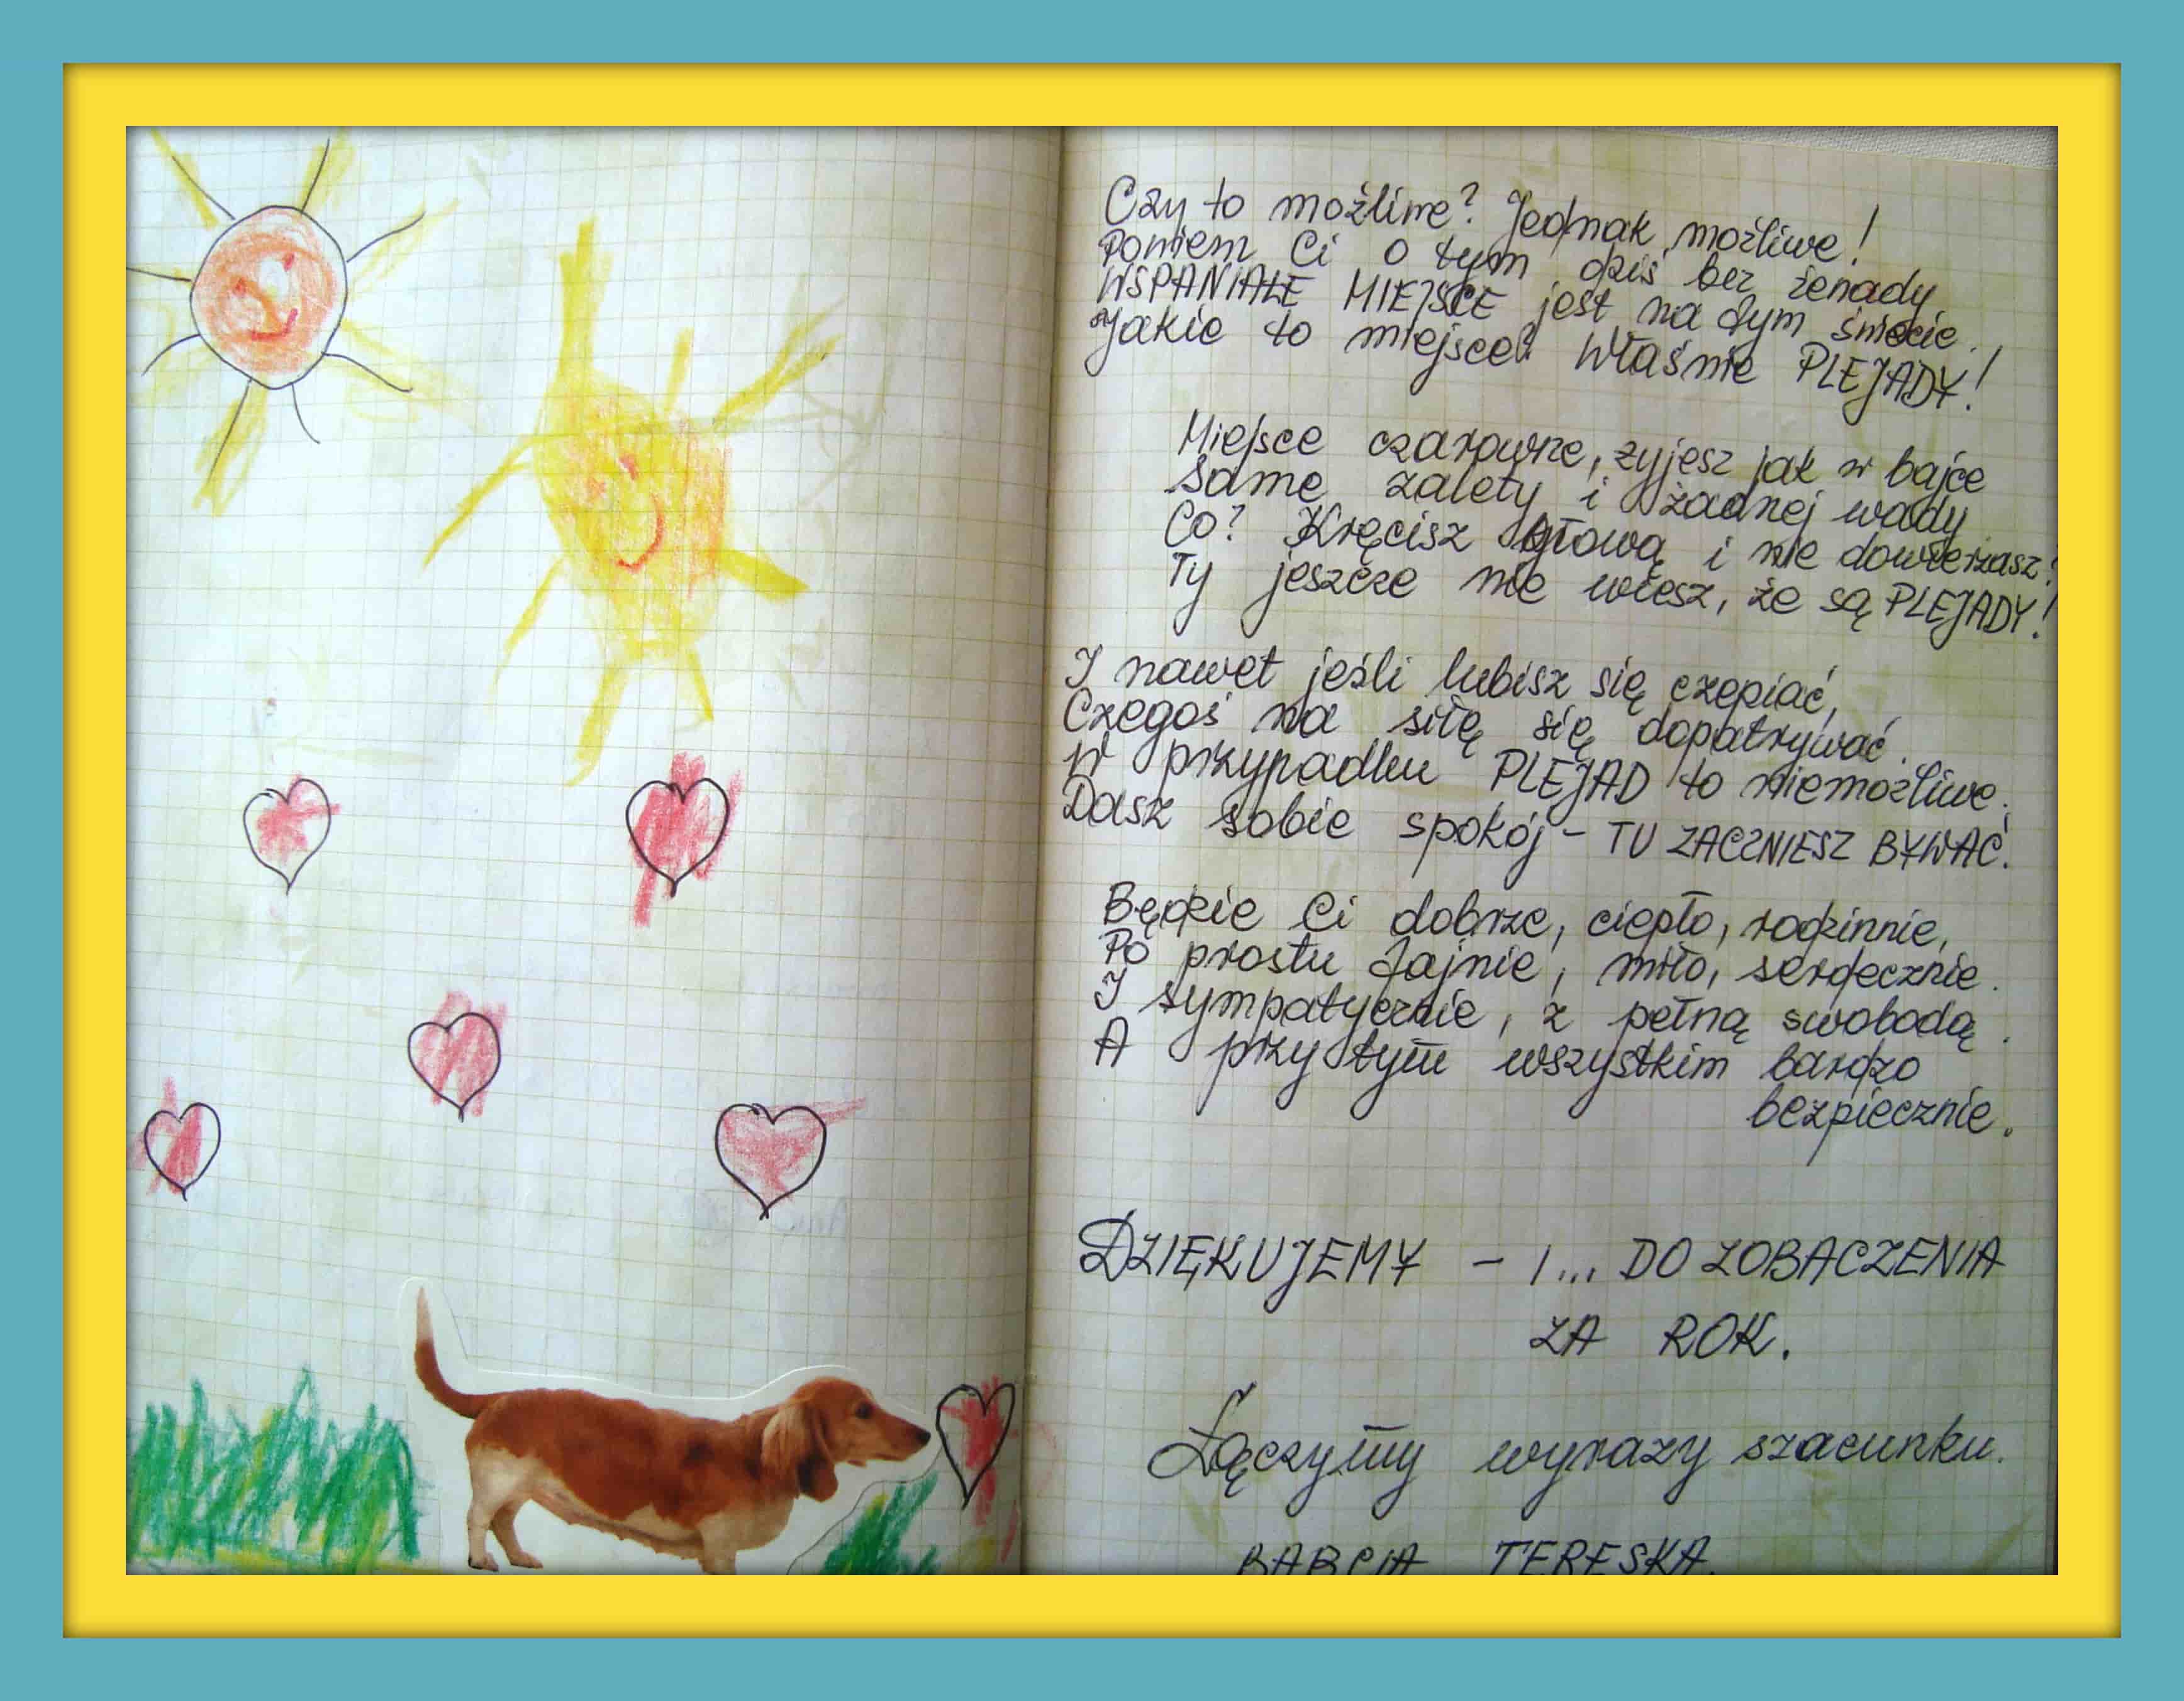 Czy to możliwe? Jednak możliwe!
Powiem Ci o tym dziś bez żenady
WSPANIAŁE MIEJSCE jest na tym świecie.
Jakie to miejsce? Właśnie PLEJADY!
Miejsce czarowne, żyjesz jak w bajce
Same zalety i żadnej wady
Co? Kręcisz głową i nie dowierzasz?
Ty jeszcze nie wiesz, że są PLEJADY!
I nawet jeśli lubisz się czepiać,
Czegoś na siłę się dopatrywać.
W przypadku PLEJAD to niemożliwe.
Dasz sobie spokój - TU ZACZNIESZ BYWAĆ.
Będzie Ci dobrze, ciepło, rodzinnie,
Po prostu fajnie, miło, serdecznie.
I sympatycznie, z pełną swobodą.
A przy tym wszystkim bardzo
bezpiecznie.
DZIĘKUJEMY - I... DO ZOBACZENIA
ZA ROK.
Łączymy wyrazy szacunku.
BABCIA TERESKA.